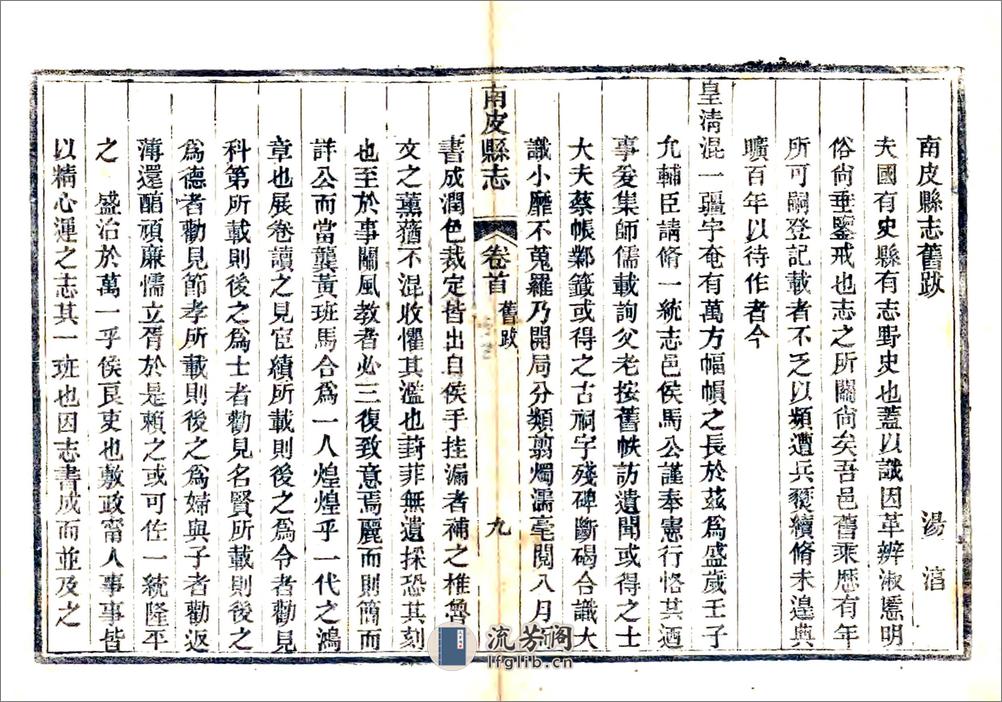 南皮縣志舊跋　湯
夫國有史縣有志野史也蓋以識因革辨淑慝明
俗尚垂鑒戒也志之所關尚矣吾邑舊乘歷有年
所可嗣登記載者不乏以類遭兵燹續脩未遑典
曠百年以待作者今
皇清混一疆宇奄有萬方幅幀之長於茲為盛歲壬子
允輔臣請脩一統志邑侯馬公謹奉憲行恪其迺
事爰集師儒載詢父老按舊帙訪遺聞或得之士
大夫蔡帳鄴籤或得之古祠字殘碑斷碣合識大
識小靡不蒐羅乃開局分類剪燭濡毫閱八月
南皮縣志　卷首　舊跋　九
書成潤色裁定皆出自侯手挂漏者補之椎魯
文之薰蕕不混收懼其濫也葑菲無遺採恐其刻
也至於事關風教者必三復致意焉麗而則簡而
詳公而當龔黃班馬合為一人煌煌乎一代之鴻
章也展卷讀之見宦績所載則後之為令者勸見
科第所載則後之為士者勸見名賢所載則後之
為德者勸見節孝所載則後之為婦與子者勸返
薄還醕頑廉懦立胥於是賴之或可佐一統隆平
之　盛治於萬一乎侯良吏也敷政甯人事事皆
以精心運之志其一班也因志書成而並及之
流芳閣
lfglib.cn